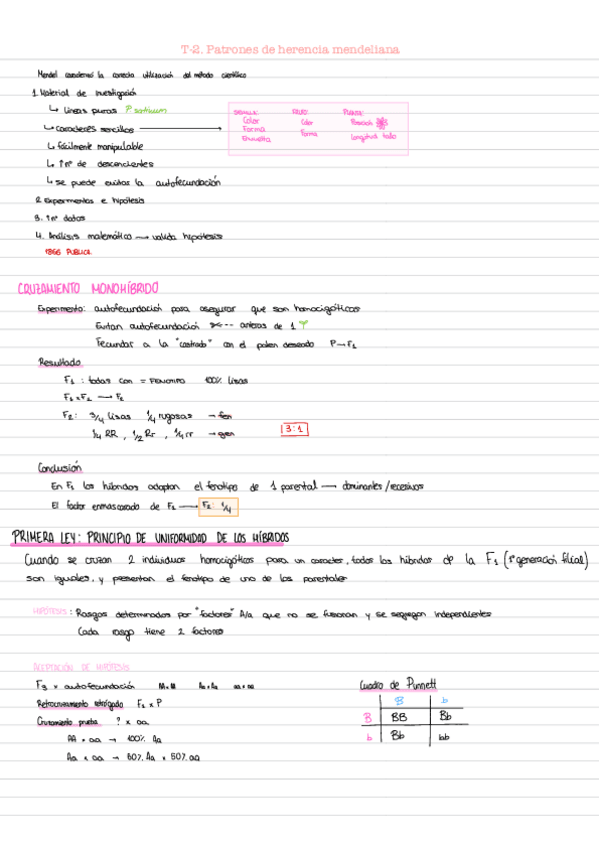 T-2. Patrones de herencia mendeliana
Mendel consideró la correcta utilización del método científico
1. Material de investigación
↳ Líneas puras P. sativum
↳ caracteres sencillos ⟶
SEMILLA: FRUTO: PLANTA:
Color Color Posición
Forma Forma Longitud tallo
Envuelta
↳ fácilmente manipulable
↳ ↑nº de descendientes
↳ se puede evitar la autofecundación
2. Experimentos e hipótesis
3. ↑nº datos
4. Análisis matemático ⟶ valida hipótesis
1866 PUBLICA
CRUZAMIENTO MONOHÍBRIDO
Experimento: autofecundación para asegurar que son homocigóticos
Evitan autofecundación ✂--- anteras de 1
Fecundar a la "castrada" con el polen deseado P→F1
Resultado
F1 : todas con = FENOTIPO 100% lisas
F1 x F1 ⟶ F2
F2: 3/4 lisas 1/4 rugosas → fen
1/4 RR , 1/2 Rr , 1/4 rr → gen 3:1
Conclusión
En F1 los híbridos adoptan el fenotipo de 1 parental ⟶ dominantes/recesivos
El factor enmascarado de F1 ⟶ F2: 1/4
PRIMERA LEY: PRINCIPIO DE UNIFORMIDAD DE LOS HÍBRIDOS
Cuando se cruzan 2 individuos homocigóticos para un caracter, todos los híbridos de la F1 (1ª generación filial)
son iguales, y presentan el fenotipo de uno de los parentales
HIPÓTESIS: Rasgos determinados por "factores" A/a que no se fusionan y se segregan independientes
Cada rasgo tiene 2 factores
ACEPTACIÓN DE HIPÓTESIS
F3 x autofecundación AA x AA Aa x Aa aa x aa
Retrocruzamiento retrógrado F1 x P
Cruzamiento prueba ? x aa
AA x aa → 100% Aa
Aa x aa → 50% Aa x 50% aa
Cuadro de Punnett
B b
B BB Bb
b Bb bb